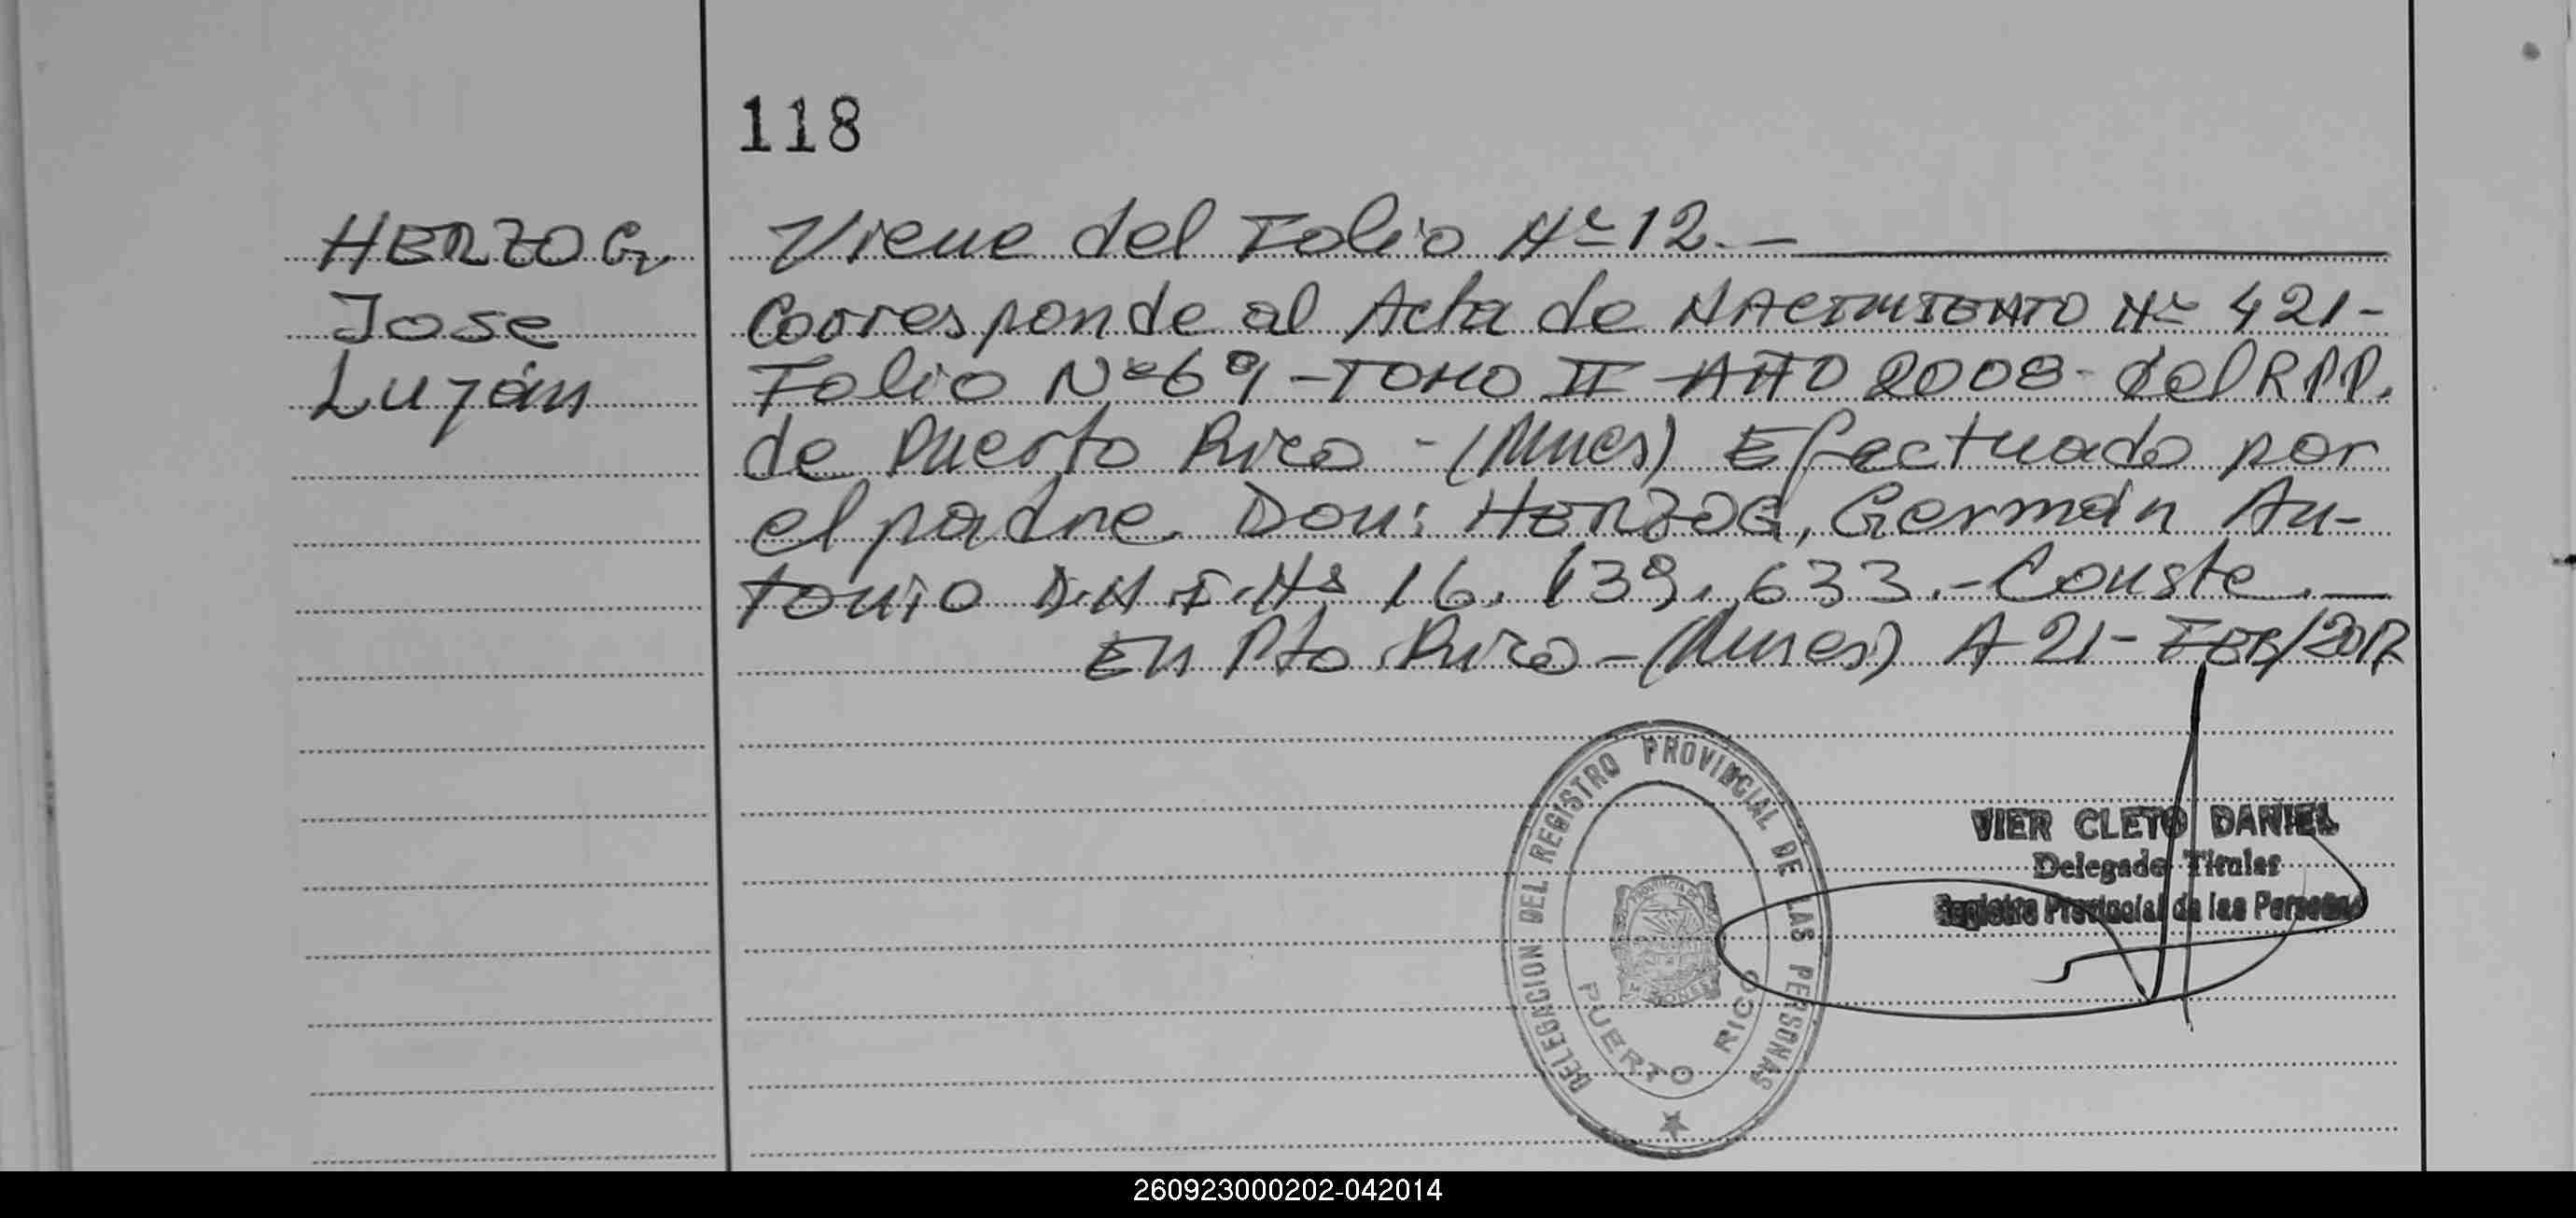 118
HERZOG
Jose
Luján
Viene del Folio Nº 12.—
Corresponde al Acta de NACIMIENTO Nº 421-
Folio Nº 69 - TOMO II - AÑO 2008 - del R.P.P.
de Puerto Rico - (Mnes) Efectuado por
el padre Don: HERZOG, Germán An-
tonio D.N.I. Nº 16.139.633.- Conste.—
En Pto Rico - (Mnes) A 21 - FEB/2017
DELEGACION DEL REGISTRO PROVINCIAL DE LAS PERSONAS
PUERTO RICO
VIER CLETO DANIEL
Delegado Titular
Registro Provincial de las Personas
260923000202-042014